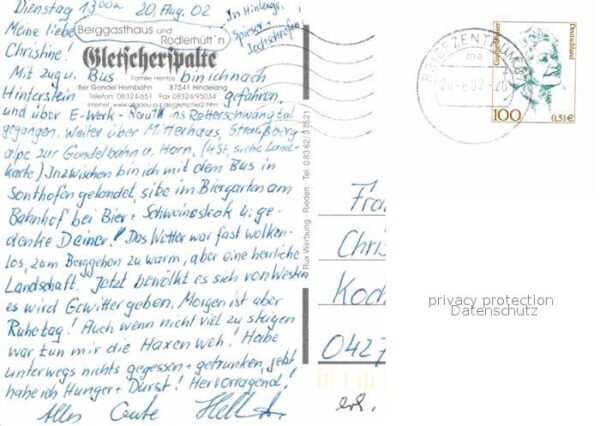 Dienstag 1300h 20. Aug. 02
In Hintergr.
Spieser +
Jochschrofen
Berggasthaus und
Rodlerhütt'n
Gletscherspalte
Familie Hentze
Bei Gondel Hornbahn 87541 Hindelang
Telefon 08324/651 Fax 08324/95034
Meine liebe
Christine!
Mit Zug u. Bus bin ich nach
Hinterstein gefahren
und über E-Werk - Route ins Retterschwangtal
gegangen. Weiter über Mitterhaus, Straußberg
alpe zur Gondelbahn a. Horn. (4 St. siehe Land-
karte) Inzwischen bin ich mit dem Bus in
Sonthofen gelandet, sitze im Biergarten am
Bahnhof bei Bier + Schweinesteak u. ge-
denke Deiner! Das Wetter war fast wolken-
los, zum Berggehen zu warm, aber eine herrliche
Landschaft. Jetzt bewölkt es sich von Westen
es wird Gewitter geben. Morgen ist aber
Ruhetag! Auch wenn nicht viel zu steigen
war tun mir die Haxen weh! Habe
unterwegs nichts gegessen + getrunken, jetzt
habe ich Hunger + Durst! Hervorragend!
Alles Gute
© Rux Werbung · Rieden · Tel. 0 83 62 / 3 75 21
BRIEFZENTRUM
Deutschland
100
0,51€
Chris
Koch
0427
erl.
privacy protection
Datenschutz